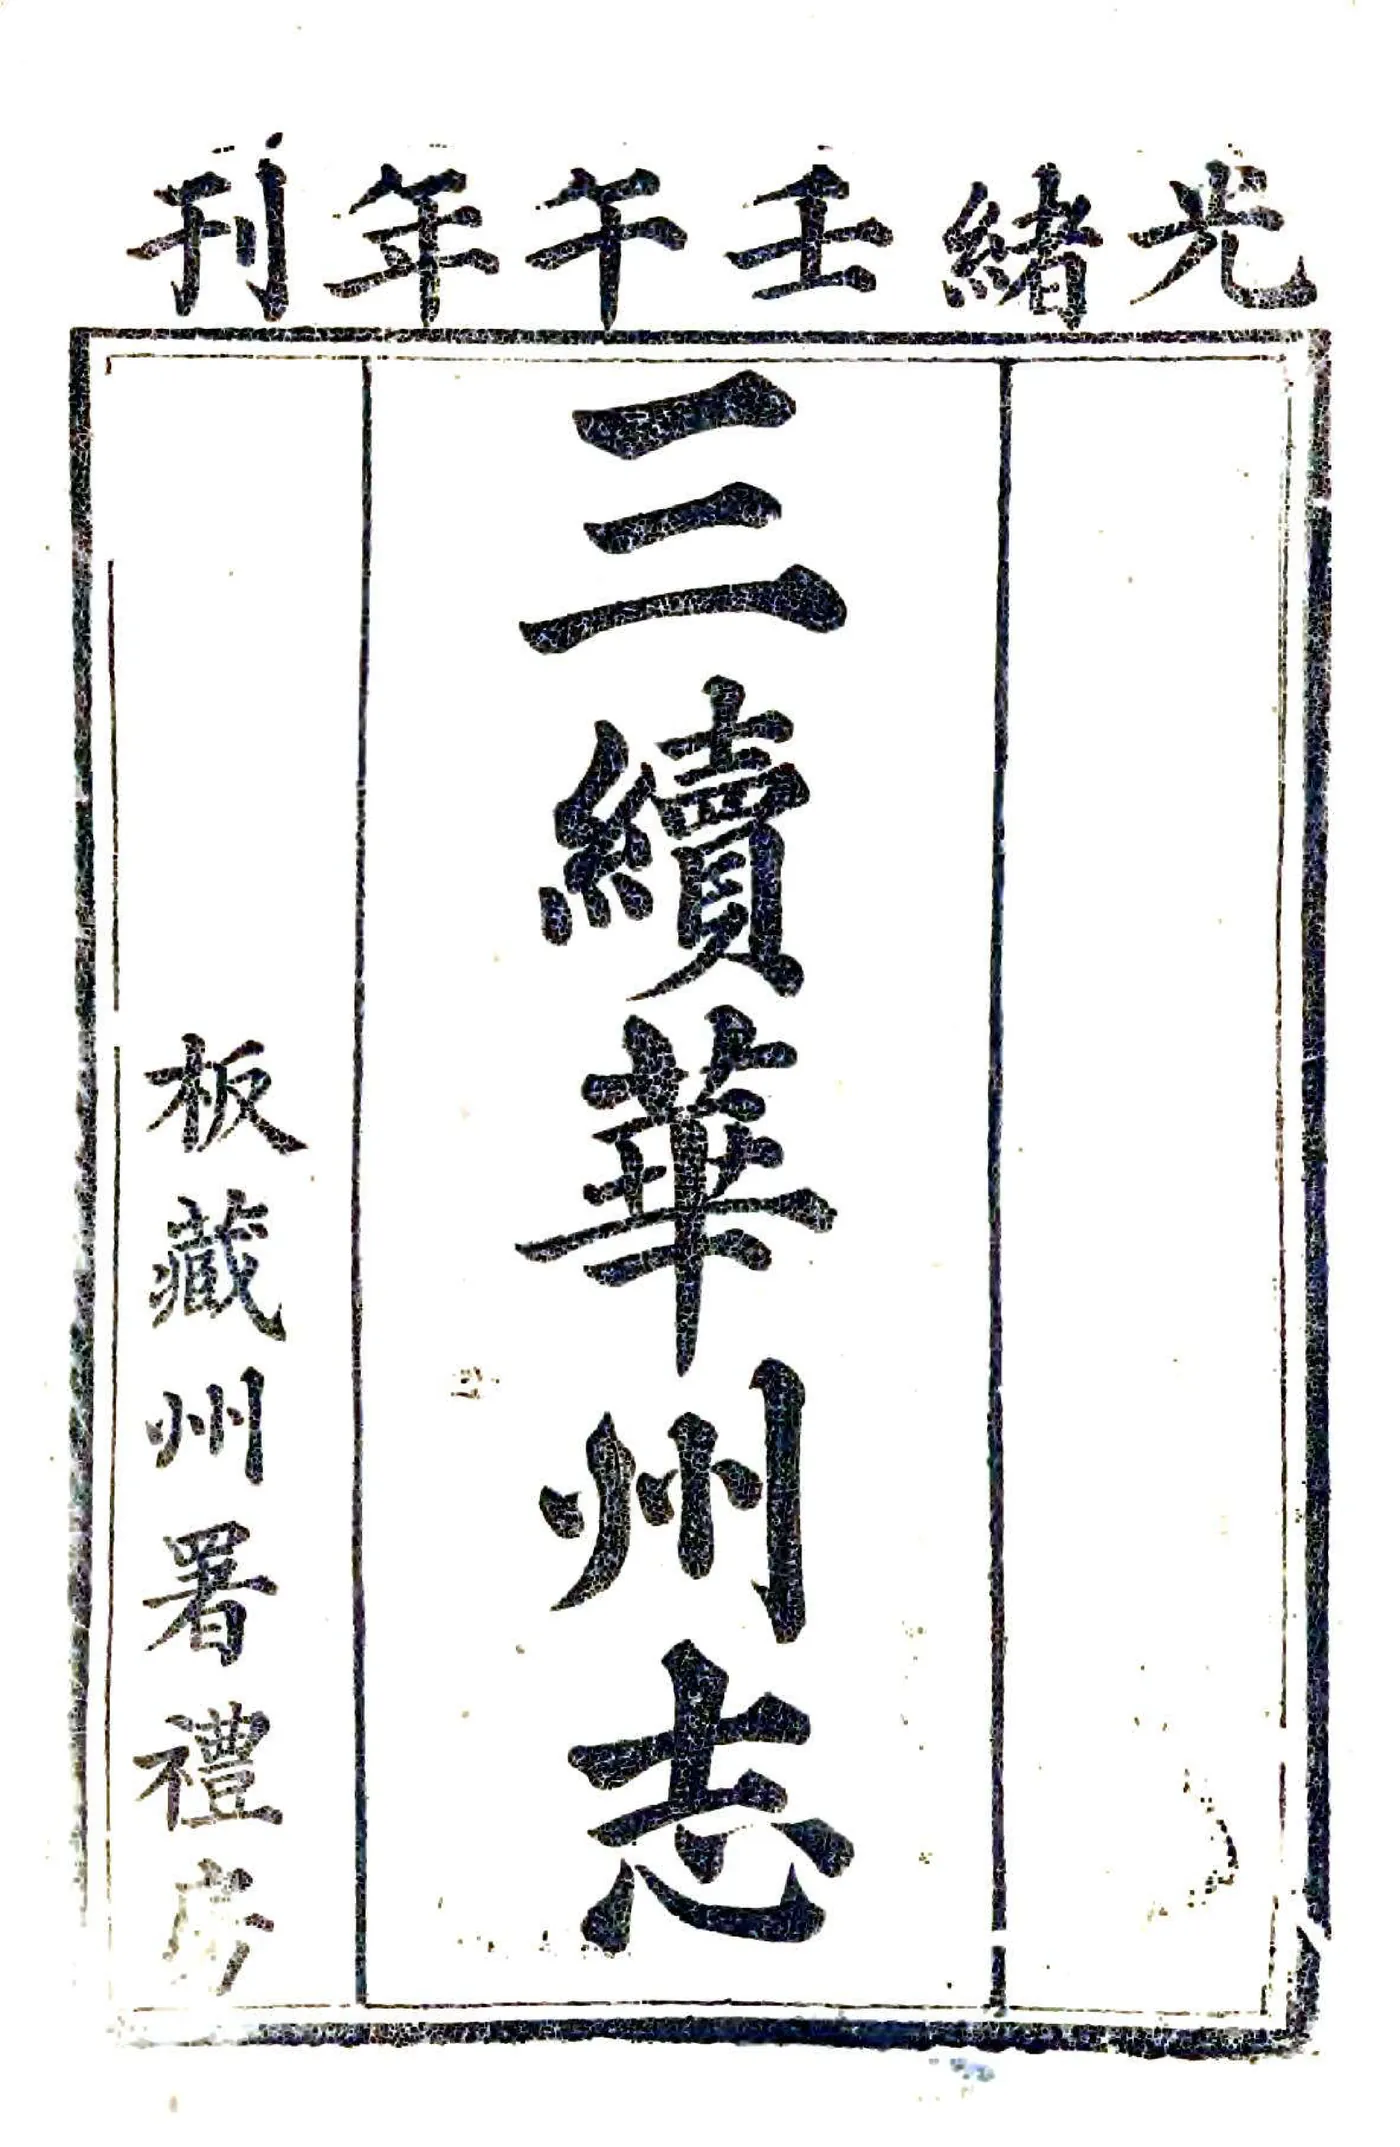 光緒壬午年刊
三續華州志
板藏州署禮房